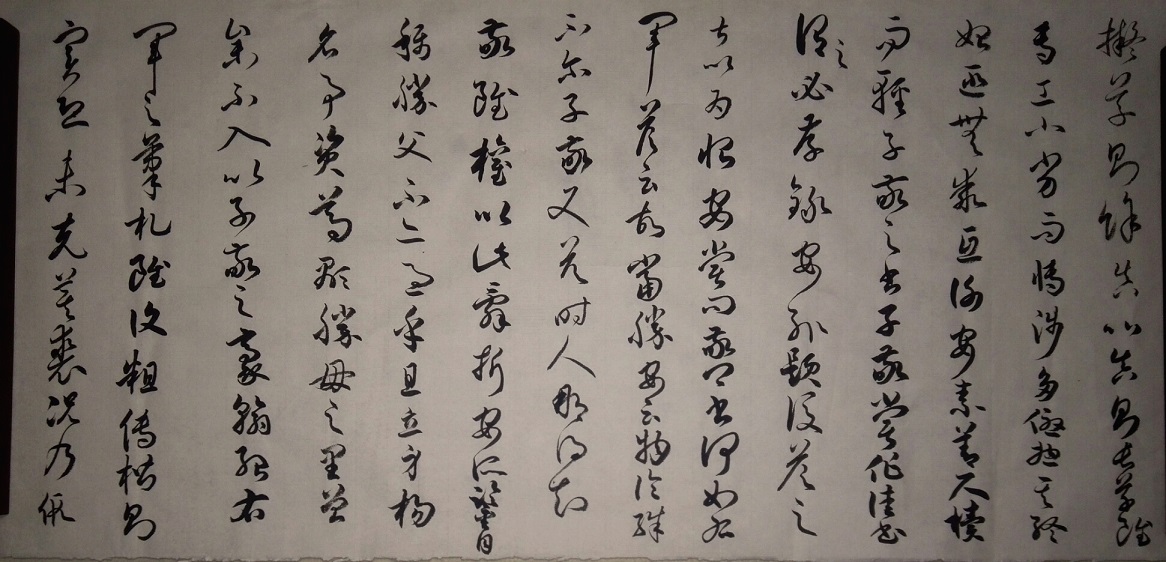 擬草則餘真以真則長草雖
專工小劣而博涉多優揔其終
始匪無乖互謝安素善尺櫝
而輕子敬之書子敬嘗作佳書
謂之必存錄安輒題後答之
甚以為恨安嘗問敬卿書何如右
軍答云故當勝安云物論殊
不爾子敬又答時人那得知
敬雖權以此辭折安所鑒自
稱勝父不亦過乎且立身揚
名事資尊顯勝母之里曾
參不入以子敬之豪翰紹右
軍之筆札雖復粗傳楷則
實恐未克箕裘況乃假